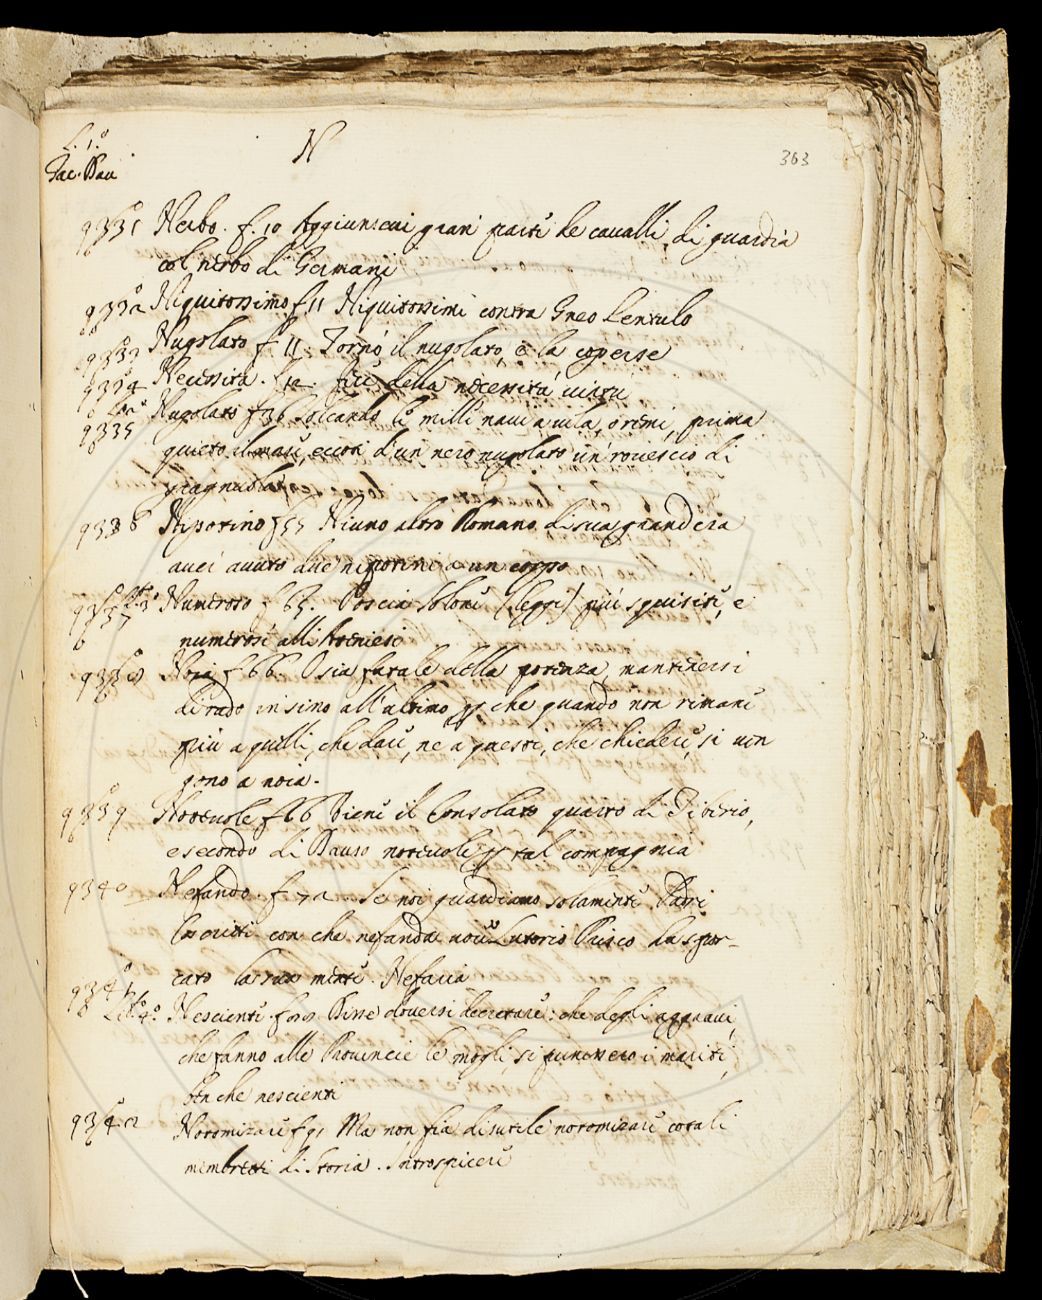 L. 1.º N 363
Tac. Dav
9331 Nerbo. f. 10 Aggiunsevi gran parte de cavalli di guardia
col nerbo di Germani
9332 Niquitosissimo f 11 Niquitosissimi contra Gneo Lentulo
9333 Nugolato f 11. Tornò il nugolato, e la coperse
9334 Necessità. f 12. fece della necessità virtu
Lib. 2º Nugolato f 36 Solcando le mille navi a vela, o remi, prima
9335 quieto il mare, eccoti d'un nero nugolato un rovescio di
gragnuola
9336 Nipotino f 55 Niuno altro Romano di sua grandeza
aver avuto due nipotini a un corpo
9337 Lib. 3º Numeroso f 65. Poscia Solone (leggi) più squisite, e
numerose alli Ateniesi
9338 Noia f 66 O sia fatale della potenza, mantenersi
di rado insino all'ultimo che quando non rimane
più a quelli, che dare, ne a questi, che chiedere, si ven
gono a noia.
9339 Notevole f 66 Viene il Consolato quarto di Tiberio,
e secondo di Druso notevole tal compagnia
9340 Nefando. f 72 Se noi guardiamo solamente Padri
Coscritti con che nefanda voce Lutorio Prisco ha spor-
cato la sua mente. Nefaria
9341 Lib. 4º Nescienti. f Disse doversi decretare: che degli aggravi,
che fanno alle Provincie le mogli, si punissero i mariti,
Anche nescienti
9342 Notomizare f 91 Ma non fia disutile notomizare cotali
membretti di Storia. Introspicere